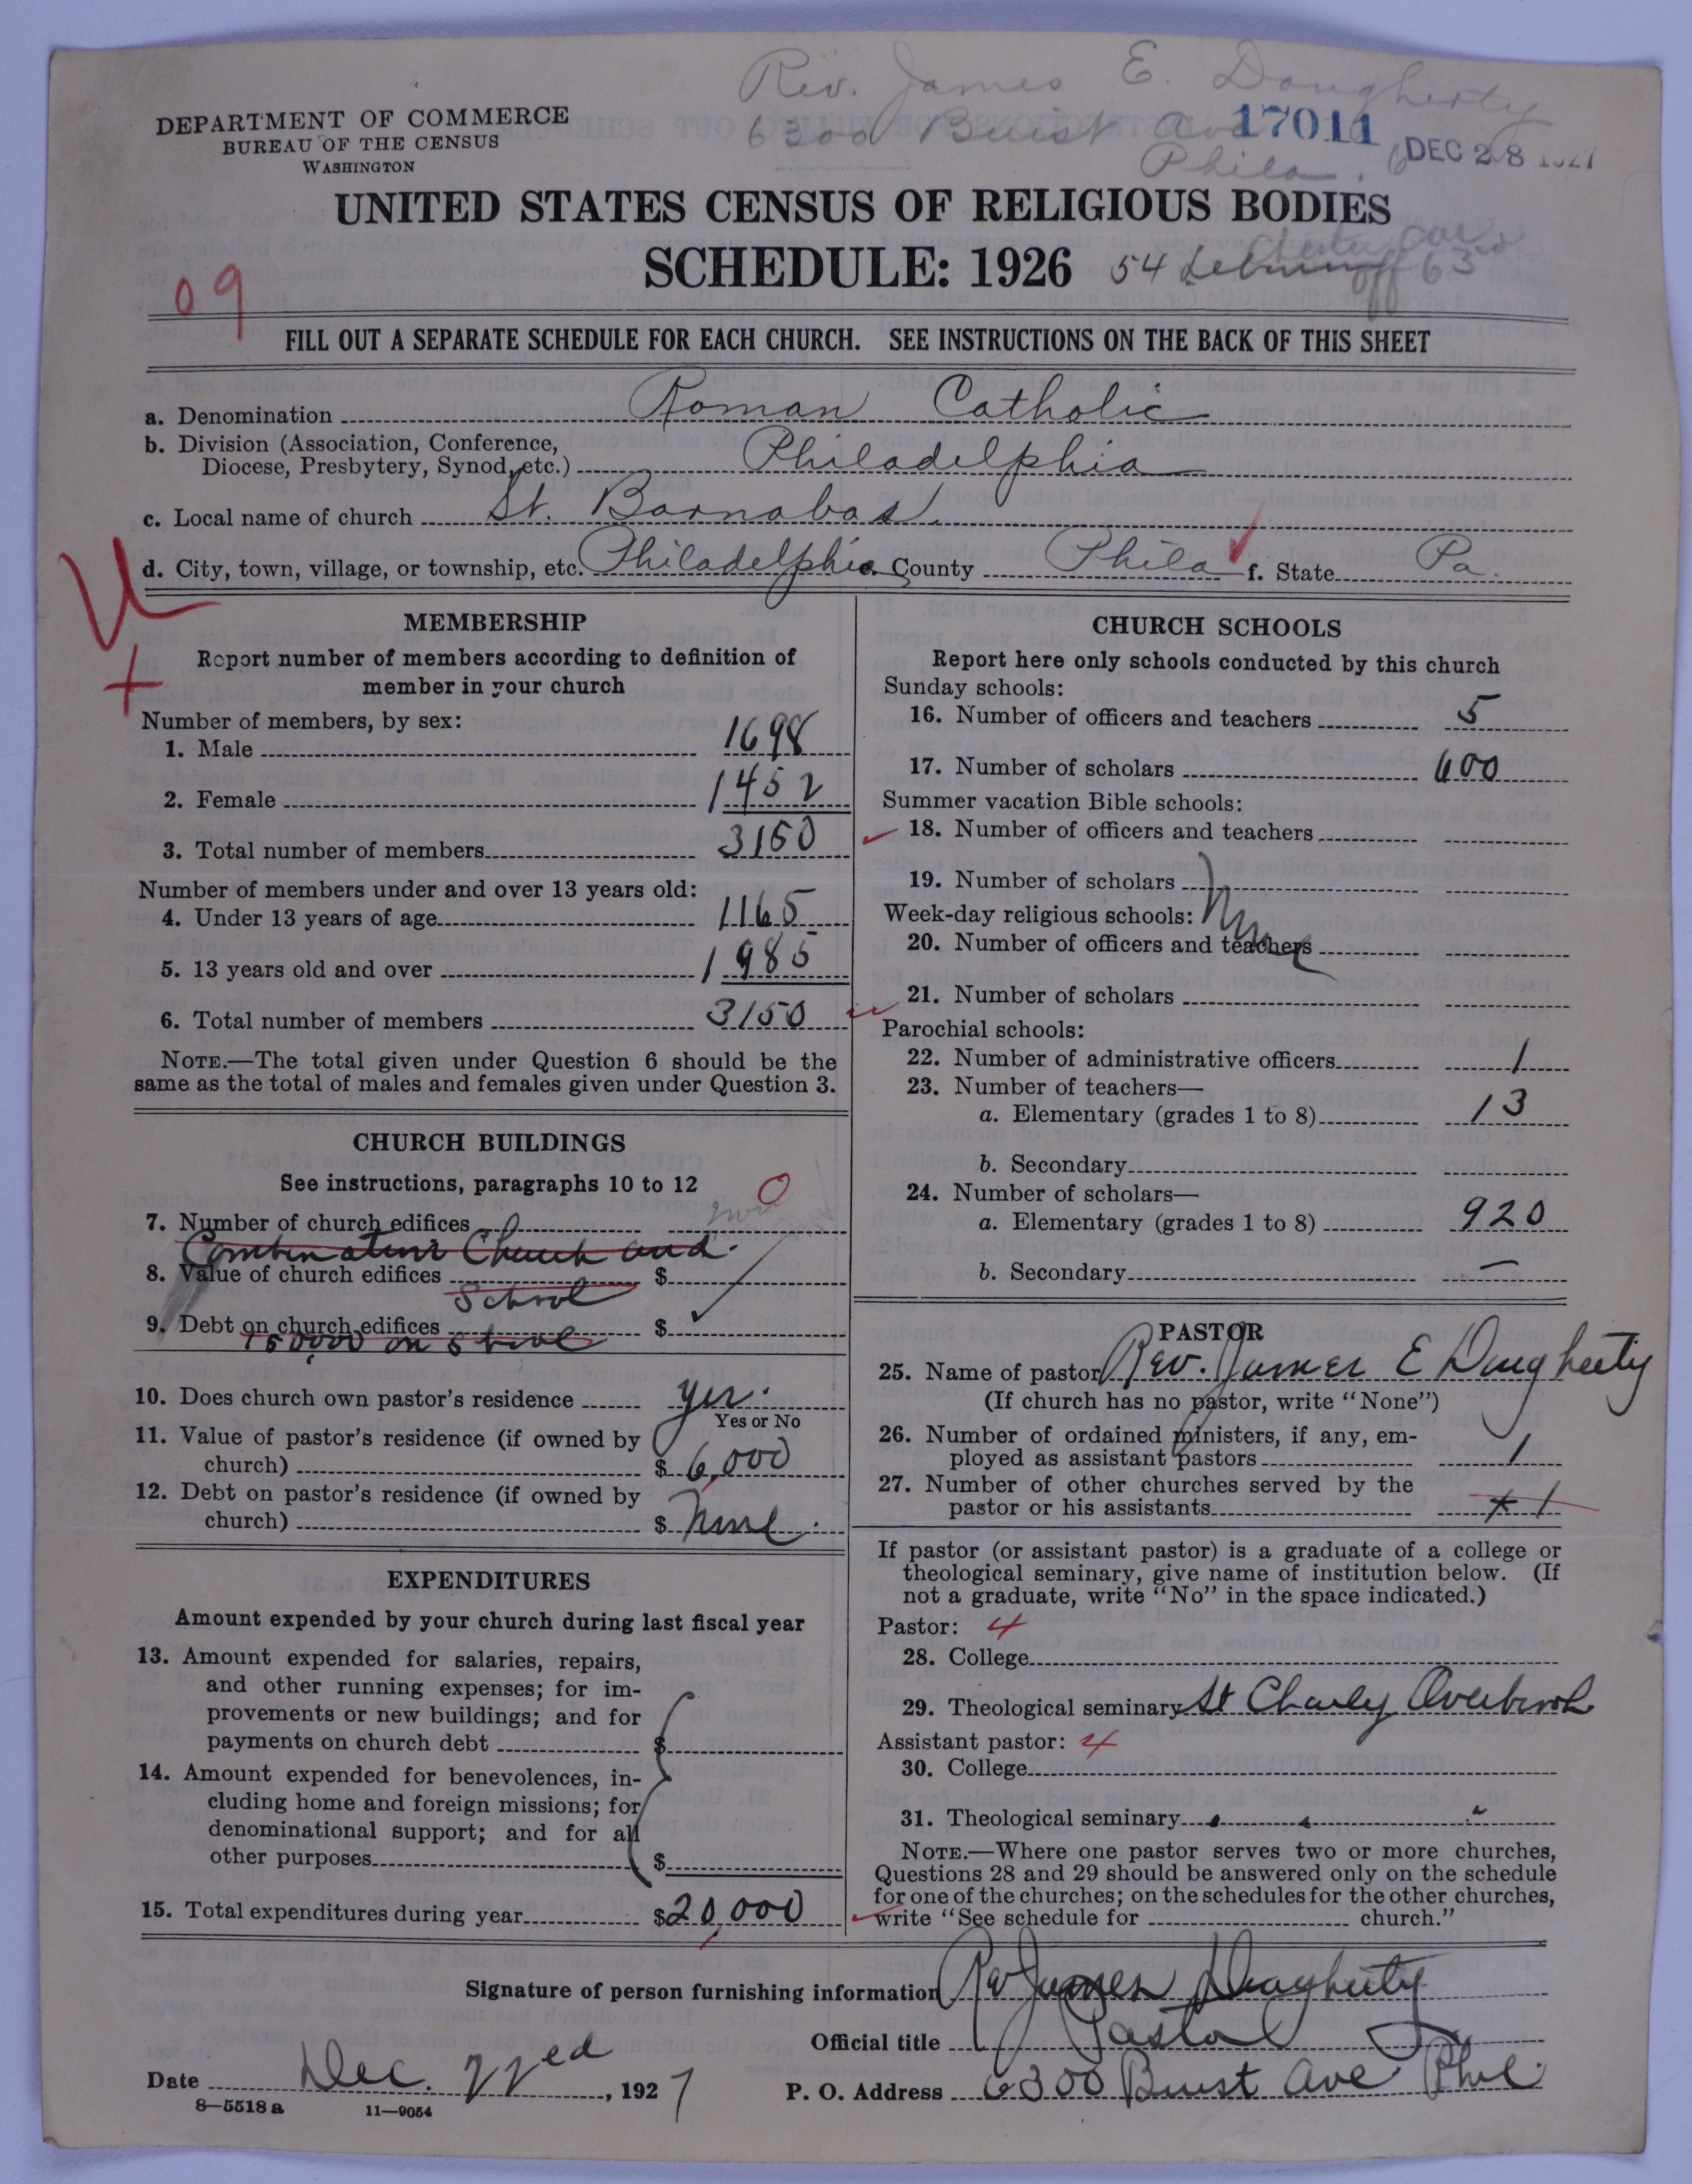 Rev. James E. Dougherty
6300 Buist Ave 17011
Phila. DEC 28 1927
DEPARTMENT OF COMMERCE
BUREAU OF THE CENSUS
WASHINGTON
UNITED STATES CENSUS OF RELIGIOUS BODIES
SCHEDULE: 1926
54 63rd
09
FILL OUT A SEPARATE SCHEDULE FOR EACH CHURCH. SEE INSTRUCTIONS ON THE BACK OF THIS SHEET
a. Denomination Roman Catholic
b. Division (Association, Conference,
Diocese, Presbytery, Synod, etc.) Philadelphia
c. Local name of church St. Barnabas
d. City, town, village, or township, etc. Philadelphia County Phila f. State Pa.
MEMBERSHIP
Report number of members according to definition of
member in your church
Number of members, by sex:
1. Male 1698
2. Female 1452
3. Total number of members 3150
Number of members under and over 13 years old:
4. Under 13 years of age 1165
5. 13 years old and over 1985
6. Total number of members 3150
NOTE.—The total given under Question 6 should be the
same as the total of males and females given under Question 3.
CHURCH BUILDINGS
See instructions, paragraphs 10 to 12
7. Number of church edifices 0
Combination Church and
8. Value of church edifices $
School
9. Debt on church edifices $
150000 on School
10. Does church own pastor's residence yes.
Yes or No
11. Value of pastor's residence (if owned by
church) $ 6,000
12. Debt on pastor's residence (if owned by
church) $ None.
EXPENDITURES
Amount expended by your church during last fiscal year
13. Amount expended for salaries, repairs,
and other running expenses; for im-
provements or new buildings; and for
payments on church debt $
14. Amount expended for benevolences, in-
cluding home and foreign missions; for
denominational support; and for all
other purposes $
15. Total expenditures during year $20,000
CHURCH SCHOOLS
Report here only schools conducted by this church
Sunday schools:
16. Number of officers and teachers 5
17. Number of scholars 600
Summer vacation Bible schools:
18. Number of officers and teachers
19. Number of scholars
Week-day religious schools: None
20. Number of officers and teachers
21. Number of scholars
Parochial schools:
22. Number of administrative officers 1
23. Number of teachers—
a. Elementary (grades 1 to 8) 13
b. Secondary
24. Number of scholars—
a. Elementary (grades 1 to 8) 920
b. Secondary —
PASTOR
25. Name of pastor Rev. James E Dougherty
(If church has no pastor, write "None")
26. Number of ordained ministers, if any, em-
ployed as assistant pastors 1
27. Number of other churches served by the
pastor or his assistants 1
If pastor (or assistant pastor) is a graduate of a college or
theological seminary, give name of institution below. (If
not a graduate, write "No" in the space indicated.)
Pastor: 4
28. College
29. Theological seminary St Charles Overbrook
Assistant pastor: 4
30. College
31. Theological seminary " " "
NOTE.—Where one pastor serves two or more churches,
Questions 28 and 29 should be answered only on the schedule
for one of the churches; on the schedules for the other churches,
write "See schedule for church."
Signature of person furnishing information Rev James Dougherty
Official title Pastor
Date Dec. 22ed, 1927 P. O. Address 6300 Buist Ave Phil.
8—5518 a 11—9054